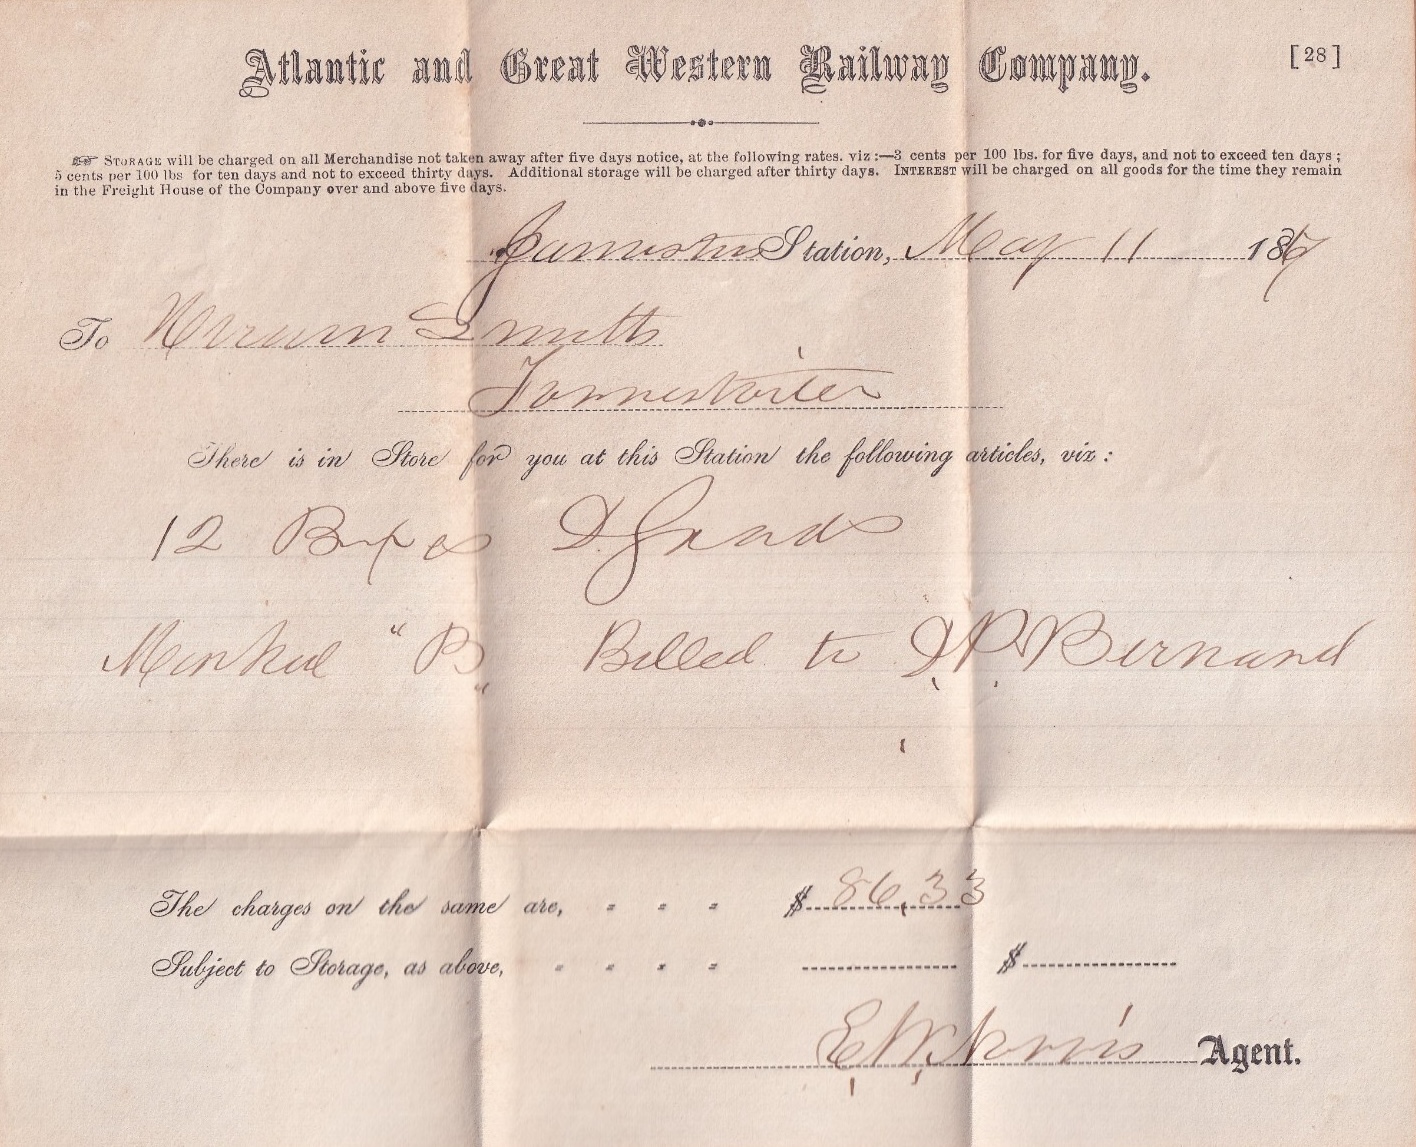 Atlantic and Great Western Railway Company. [28]
☞ STORAGE will be charged on all Merchandise not taken away after five days notice, at the following rates. viz :—3 cents per 100 lbs. for five days, and not to exceed ten days ;
5 cents per 100 lbs for ten days and not to exceed thirty days. Additional storage will be charged after thirty days. INTEREST will be charged on all goods for the time they remain
in the Freight House of the Company over and above five days.
Jamestown Station, May 11 1867
To Hiram Smith
There is in Store for you at this Station the following articles, viz :
12 Boxes D. Goods
Marked "B" Billed to D. P. Bernard
The charges on the same are, $ 86.33
Subject to Storage, as above, $
E. W. Norris Agent.